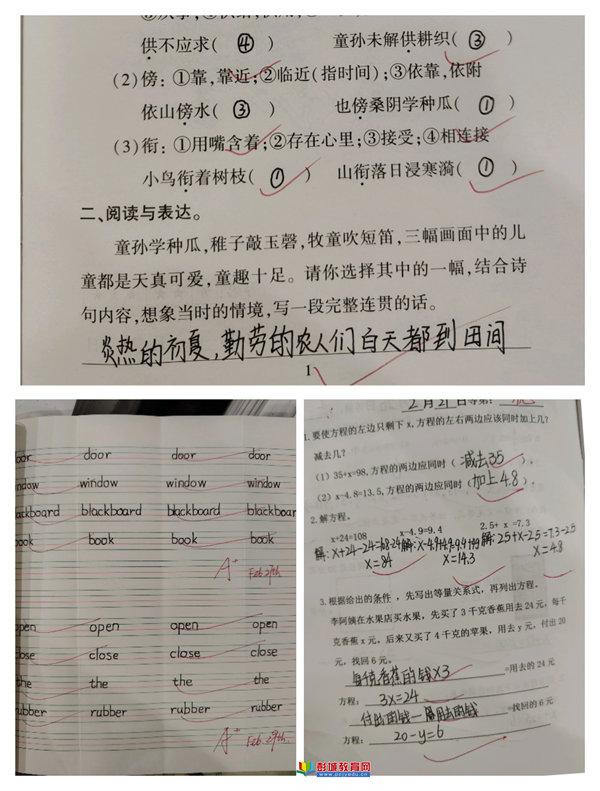 供不应求( ④ ) 童孙未解供耕织( ③ )
(2)傍:①靠,靠近;②临近(指时间);③依靠,依附
依山傍水( ③ ) 也傍桑阴学种瓜( ① )
(3)衔:①用嘴含着;②存在心里;③接受;④相连接
小鸟衔着树枝( ① ) 山衔落日浸寒漪( ① )
二、阅读与表达。
童孙学种瓜,稚子敲玉磬,牧童吹短笛,三幅画面中的儿
童都是天真可爱,童趣十足。请你选择其中的一幅,结合诗
句内容,想象当时的情境,写一段完整连贯的话。
炎热的初夏,勤劳的农人们白天都到田间
1
door door door door
window window window window
blackboard blackboard blackboard blackboard
book book book book
A+ Feb 29th.
open open open open
close close close close
the the the the
rubber rubber rubber rubber
A+ Feb. 29th.
1.要使方程的左边只剩下 x,方程的左右两边应该同时加上几?
减去几?
(1)35+x=98,方程的两边应同时( 减去35 ),
(2)x-4.8=13.5,方程的两边应同时( 加上4.8 ),
2.解方程。
x+24=108 x-4.9=9.4 2.5+ x =7.3
解: x+24-24=108-24 解: x-4.9+4.9=9.4+4.9 解: 2.5+x-2.5=7.3-2.5
x=84 x=14.3 x=4.8
3.根据给出的条件 ,先写出等量关系式,再列出方程。
李阿姨在水果店买水果,先买了 3 千克香蕉用去 24 元,每千
克香蕉 x 元,后来又买了 4 千克的苹果,用去 y 元,付出 20
元,找回 6 元。
每千克香蕉的钱×3 =用去的 24 元
方程: 3x=24
付出的钱— 用去的钱 =找回的 6 元
方程: 20-y=6
彭城教育网
www.pcjyedu.cn